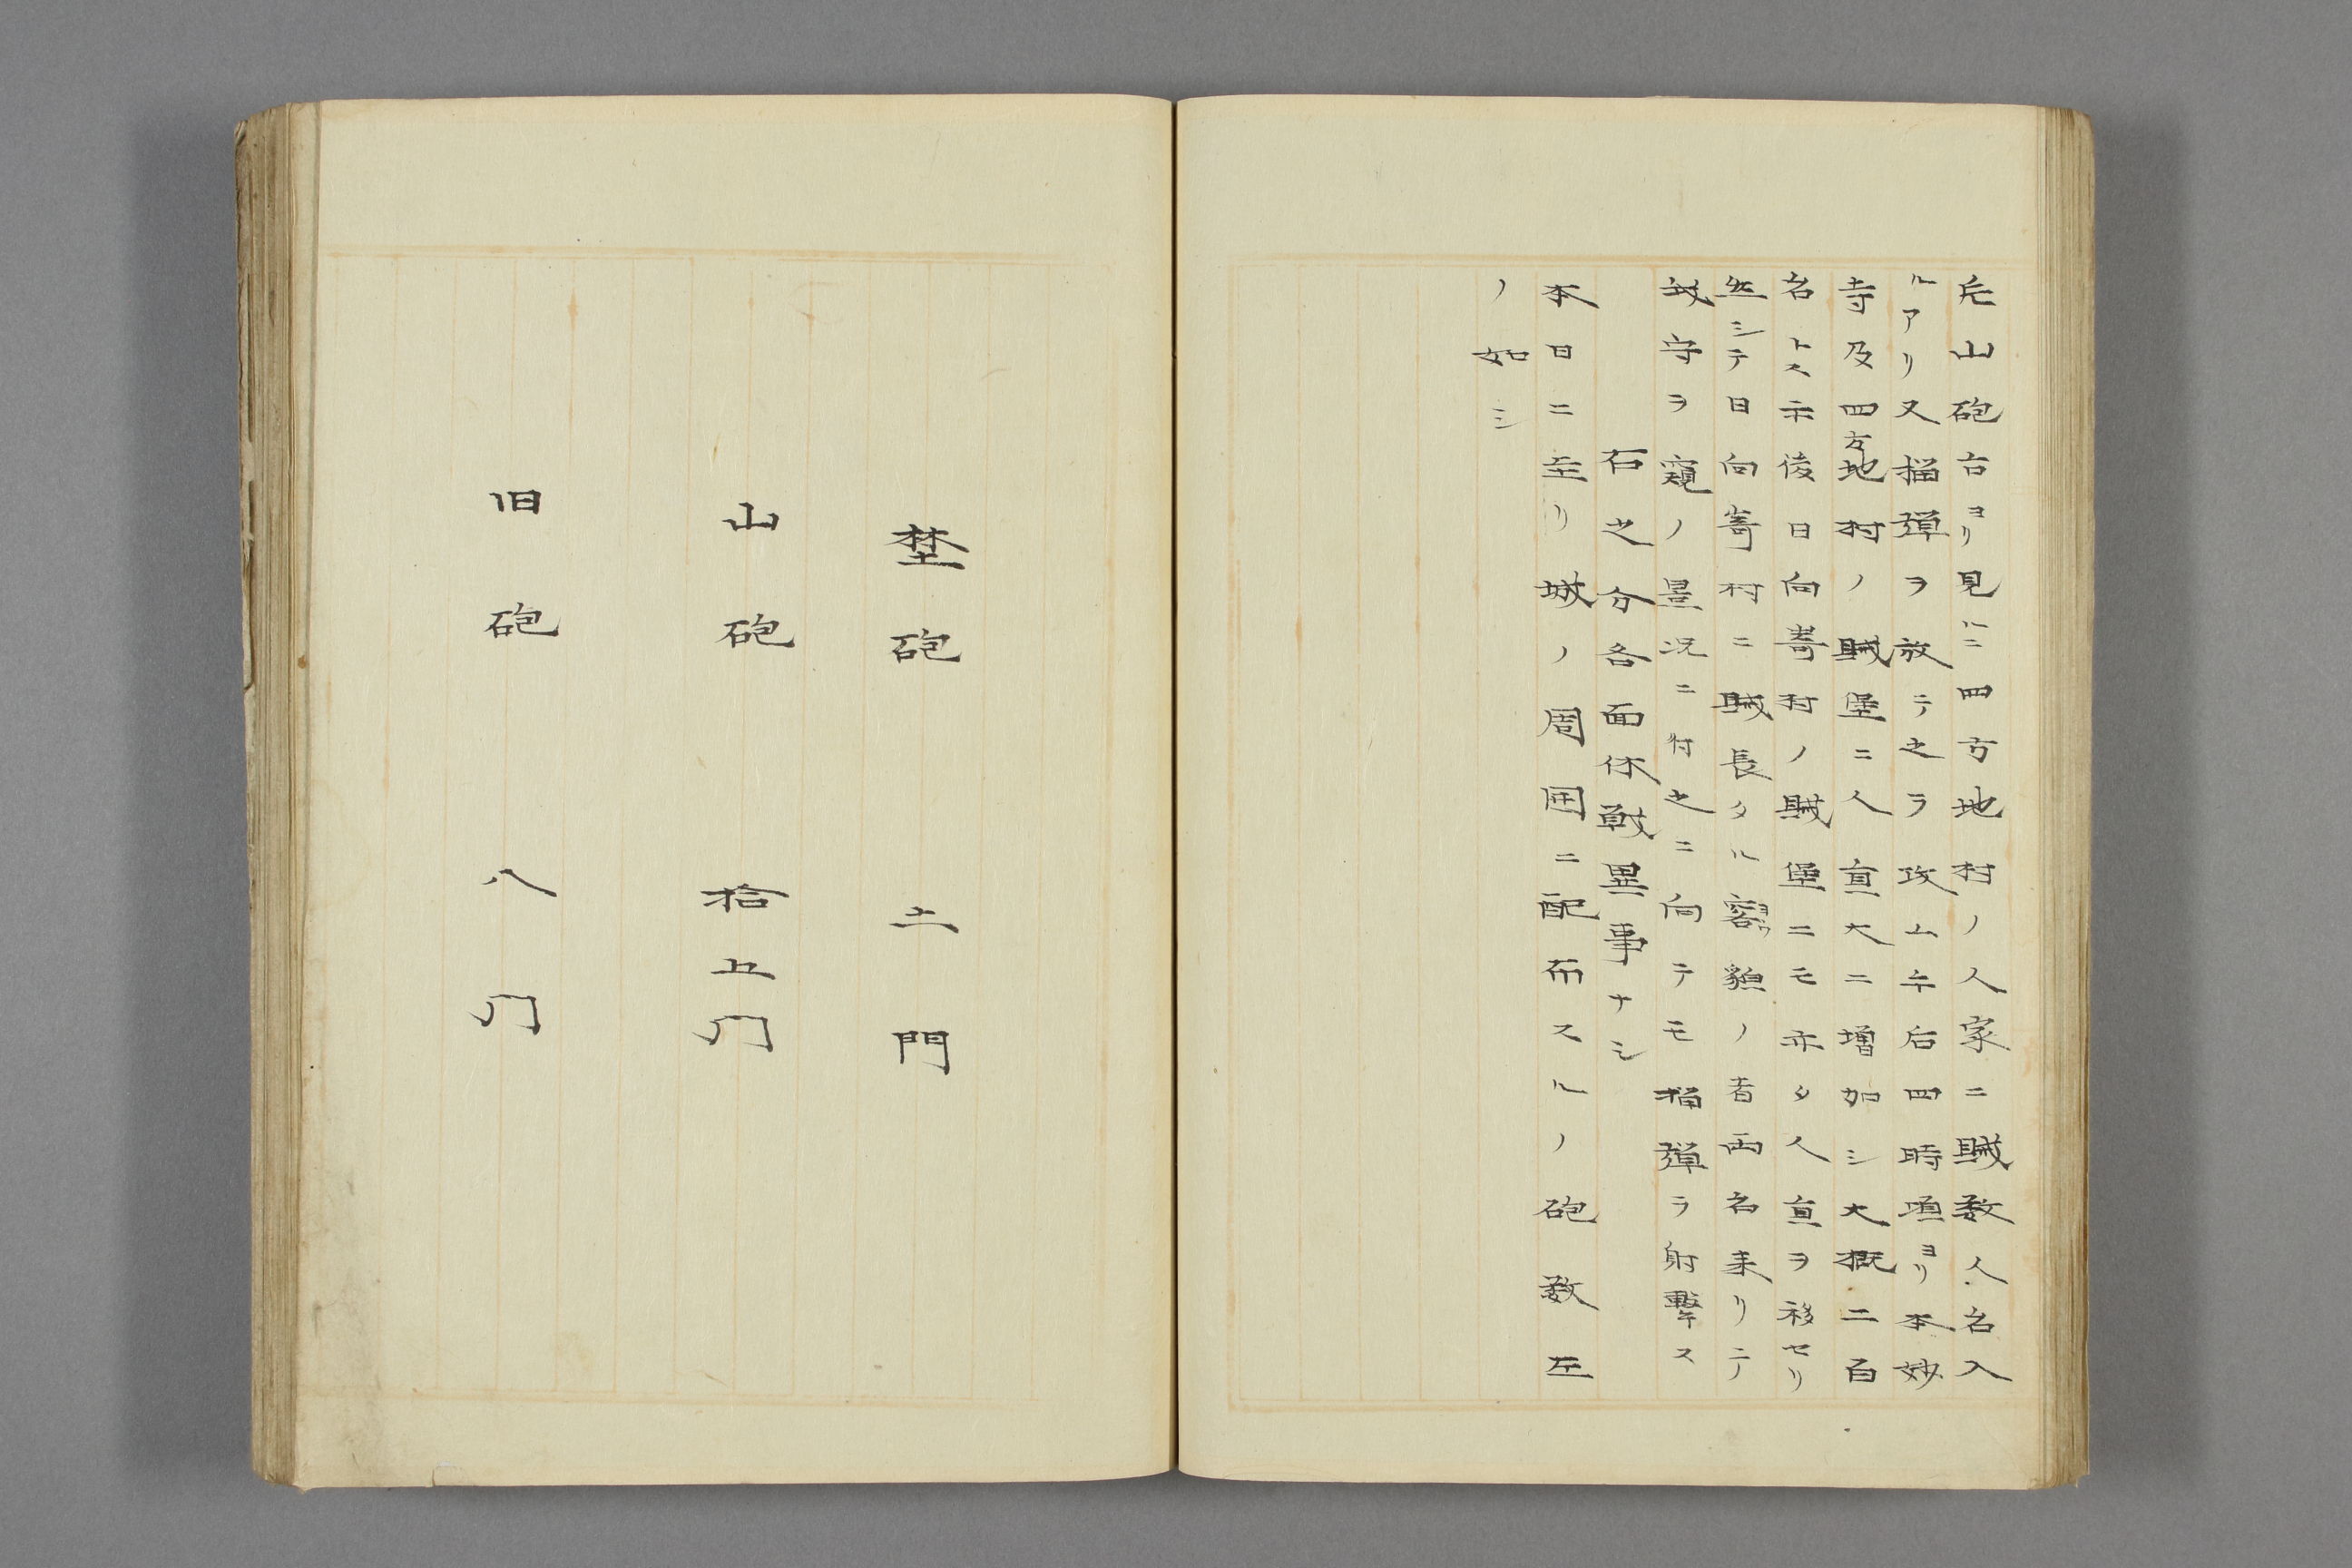 花山砲台ヨリ見ルニ四方地村ノ人家ニ賊数人名入
ルアリ又榴弾ヲ放テ之ヲ攻ム午后四時頃ヨリ本妙
寺及四方地村ノ賊塁ニ人員大ニ増加シ大概二百
名トス示後日向嵜村ノ賊塁ニモ亦タ人員ヲ移セリ
然シテ日向嵜村ニ賊長タル容貌ノ者両名来リテ
我守ヲ窺ノ景况ニ付之ニ向テモ榴弾ヲ射撃ス
右之分各面休戦異事ナシ
本日ニ至リ城ノ周囲ニ配布スルノ砲数左
ノ如シ
埜砲 二門
山砲 拾五门
旧砲 八门